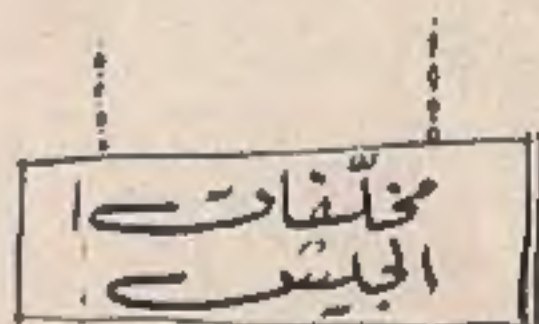 مخلّفات
الجيش